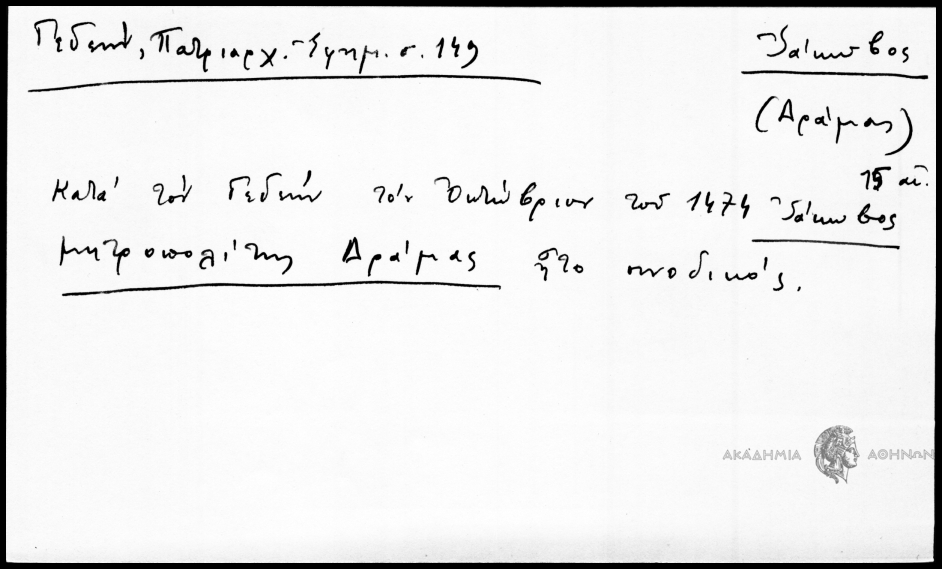 Γεδεών, Πατριαρχ. Ἐφημ. σ. 149
Ἰάκωβος
(Δράμας)
15 αἰ.
Κατά τόν Γεδεών τόν Ὀκτώβριον τοῦ 1474 Ἰάκωβος
μητροπολίτης Δράμας ἦτο συνοδικός.
ΑΚΑΔΗΜΙΑ ΑΘΗΝΩΝ